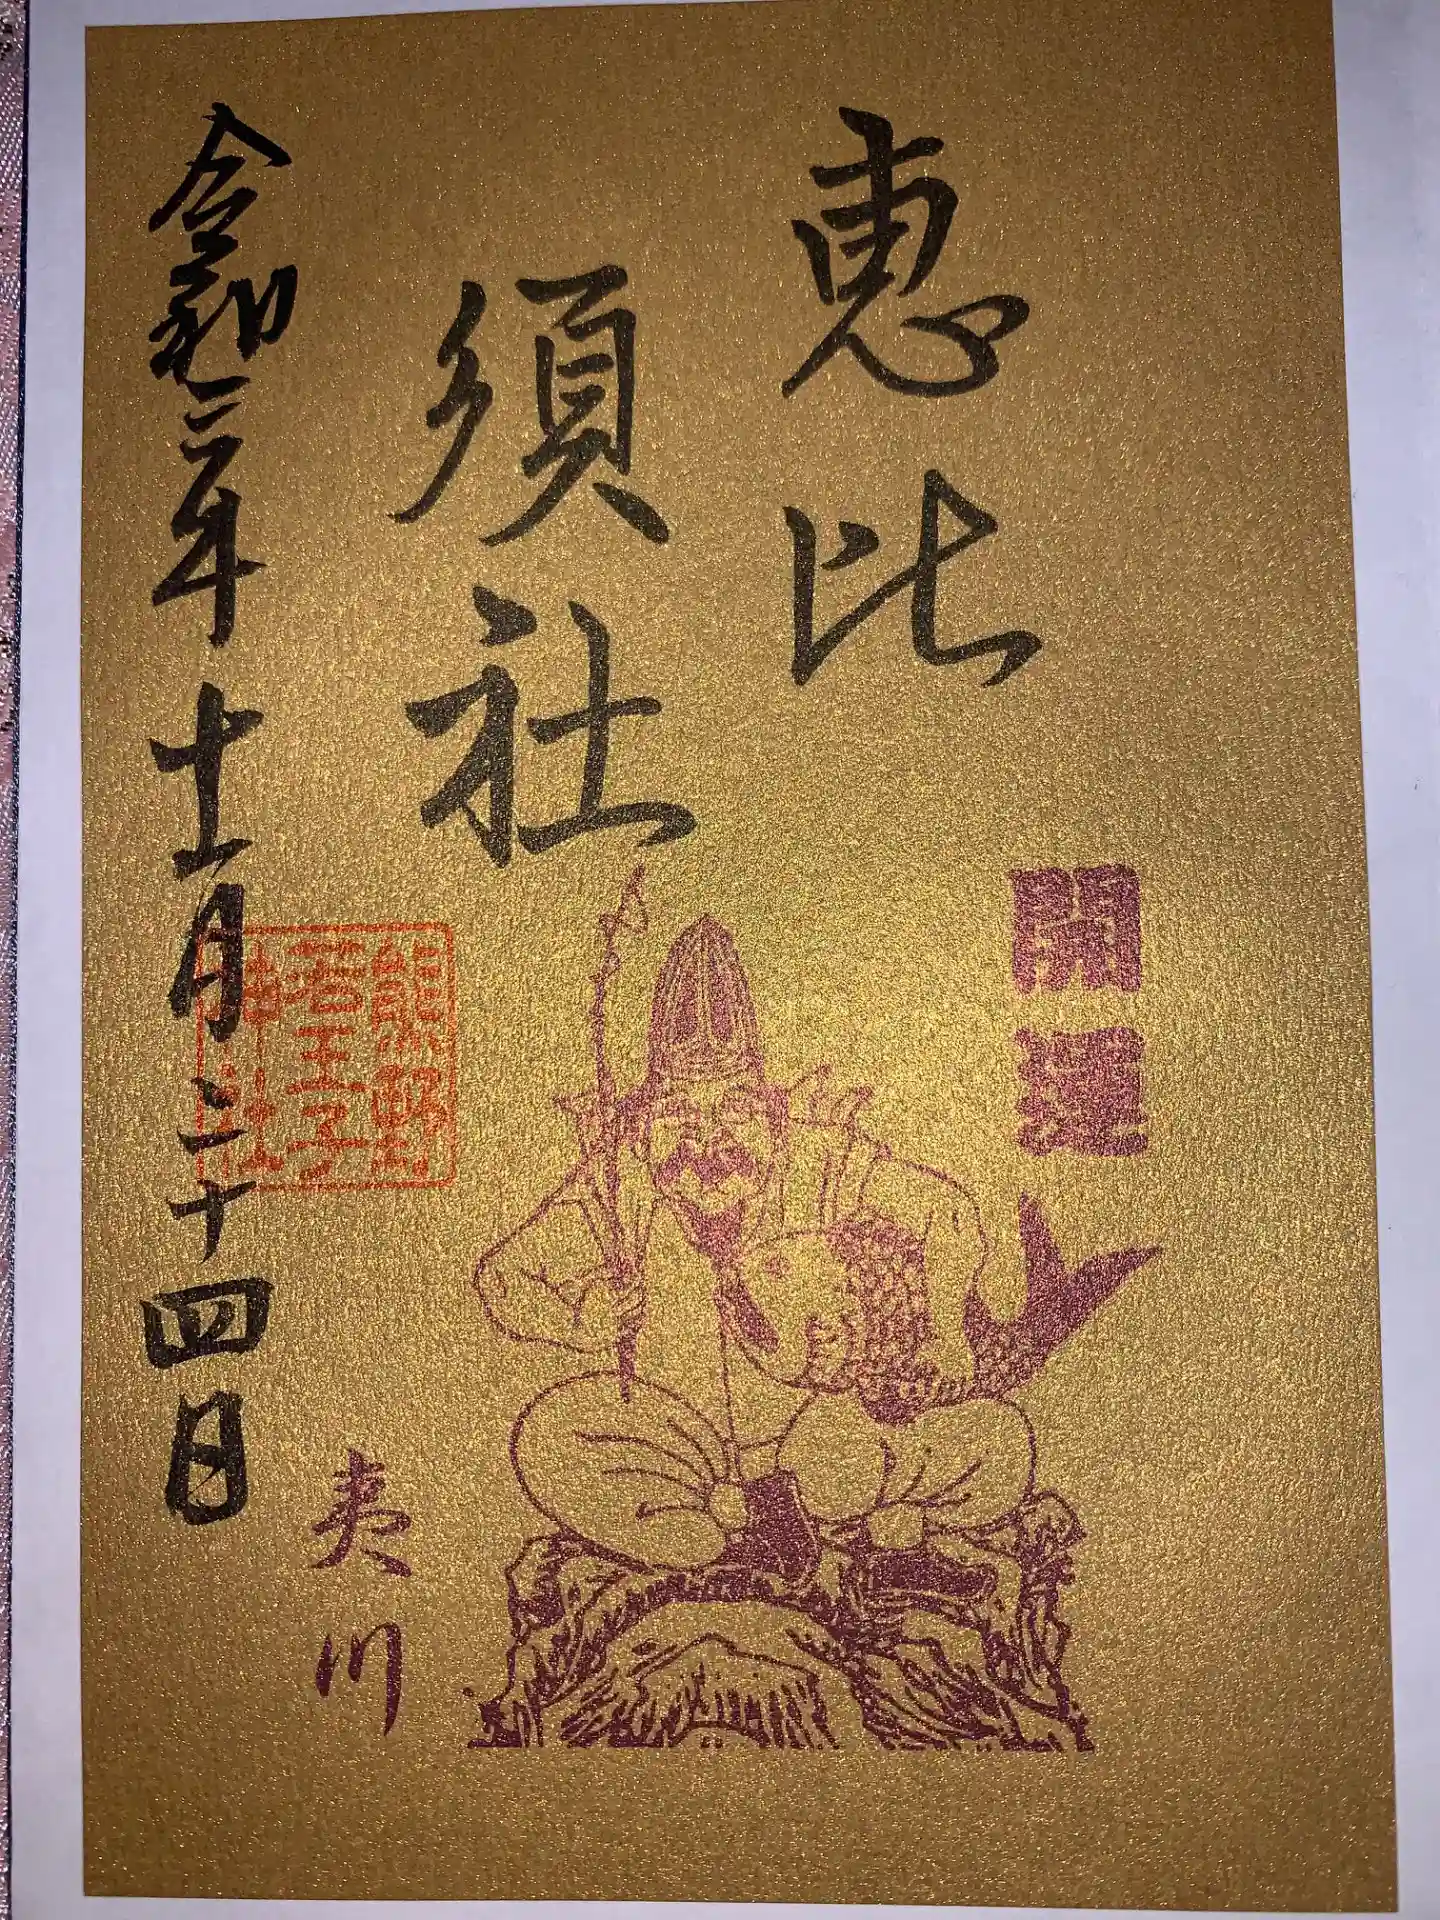 恵比
須社
開運
熊野
若王子
神社
夷川
令和三年十一月二十四日